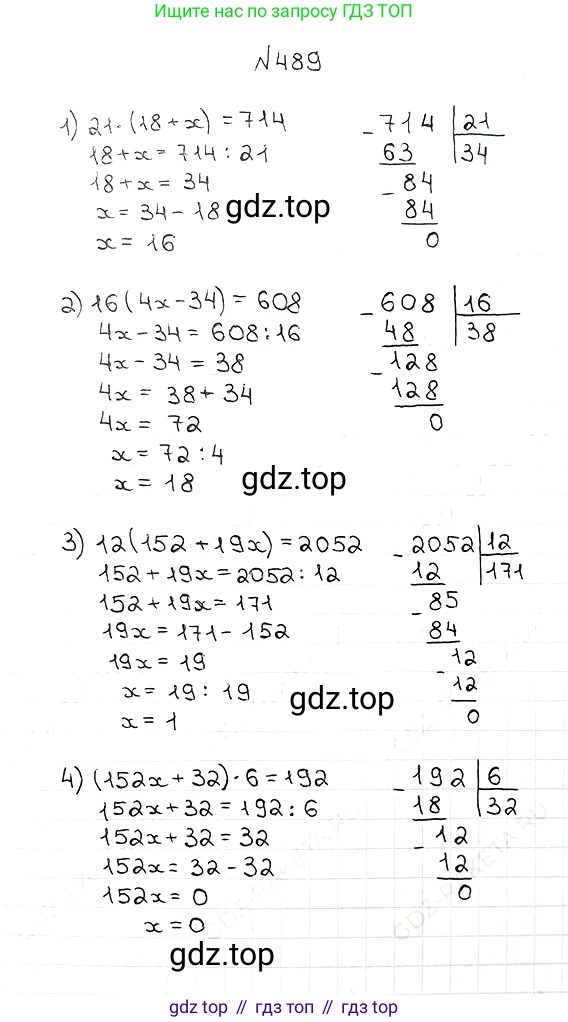 Ищите нас в поиске по запросу ГДЗ ТОП
№489
1) 21·(18+x) = 714
18+x = 714 : 21
18+x = 34
x = 34 - 18
x = 16
- 714 | 21
63 34
- 84
84
0
gdz.top
2) 16(4x-34) = 608
4x-34 = 608:16
4x-34 = 38
4x = 38+34
4x = 72
x = 72:4
x = 18
- 608 | 16
48 38
- 128
128
0
gdz.top
3) 12(152+19x) = 2052
152+19x = 2052:12
152+19x = 171
19x = 171-152
19x = 19
x = 19:19
x = 1
- 2052 | 12
12 171
- 85
84
- 12
12
0
gdz.top
4) (152x+32)·6 = 192
152x+32 = 192:6
152x+32 = 32
152x = 32-32
152x = 0
x = 0
- 192 | 6
18 32
- 12
12
0
gdz.top
gdz.top // гдз.топ // gdz.top